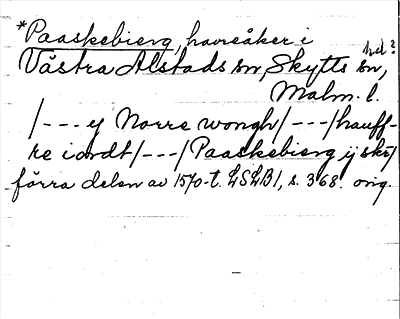 *Paaskebierg, havreåker i
Västra Alstads sn, Skytts sn, hd?
Malm. l.
/--- ej Norre wongh/---/hauff-
re iordt/---/Paaskebierg ij skr/
förra delen av 1570-t. LSLB1, s. 368. orig.